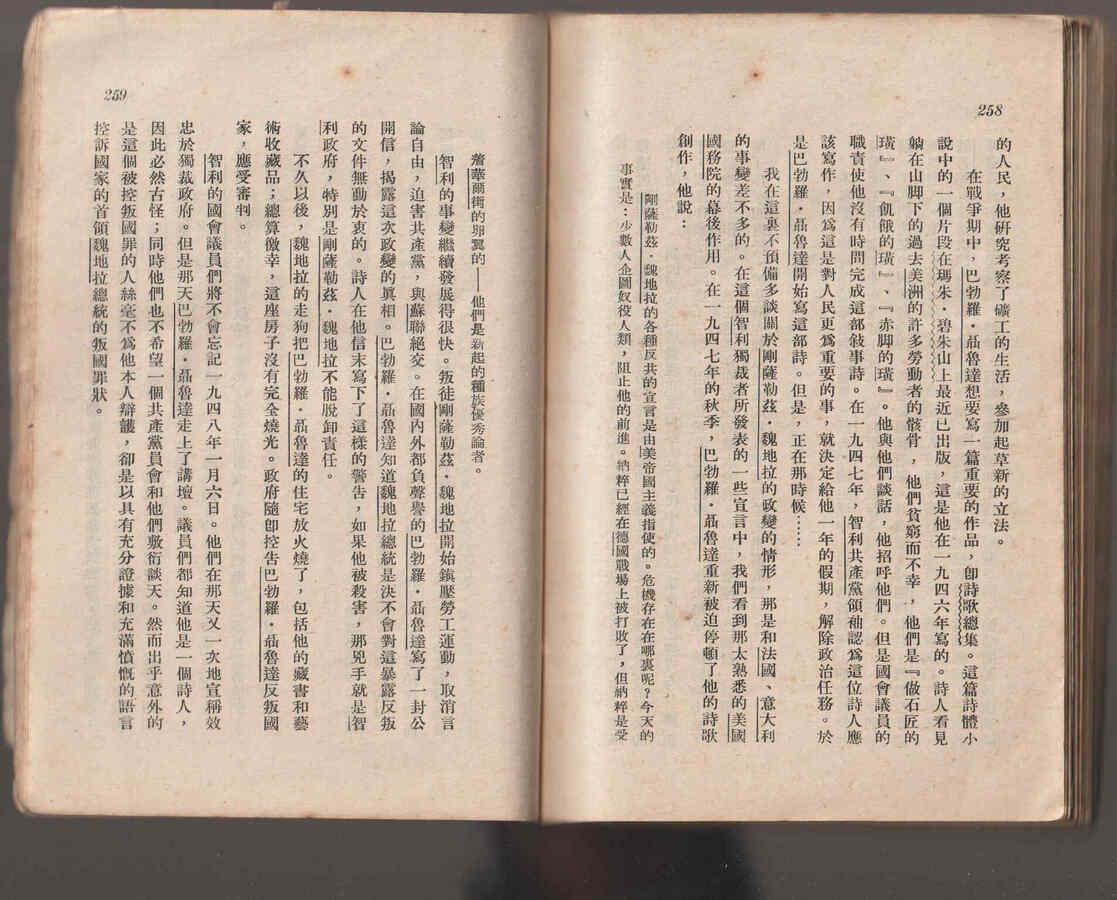 258
的人民，他研究考察了礦工的生活，參加起草新的立法。
在戰爭期中，巴勃羅·聶魯達想要寫一篇重要的作品，卽詩歌總集。這篇詩體小
說中的一個片段在瑪朱·碧朱山上最近已出版，這是他在一九四六年寫的。詩人看見
躺在山脚下的過去美洲的許多勞動者的骸骨，他們貧窮而不幸，他們是『做石匠的
璜』、『飢餓的璜』、『赤脚的璜』。他與他們談話，他招呼他們。但是國會議員的
職責使他沒有時間完成這部敍事詩。在一九四七年，智利共產黨領袖認爲這位詩人應
該寫作，因爲這是對人民更爲重要的事，就決定給他一年的假期，解除政治任務。於
是巴勃羅·聶魯達開始寫這部詩。但是，正在那時候……
我在這裏不預備多談關於剛薩勒茲·魏地拉的政變的情形，那是和法國、意大利
的事變差不多的。在這個智利獨裁者所發表的一些宣言中，我們看到那太熟悉的美國
國務院的幕後作用。在一九四七年的秋季，巴勃羅·聶魯達重新被迫停頓了他的詩歌
創作，他說：
剛薩勒茲·魏地拉的各種反共的宣言是由美帝國主義指使的。危機存在在哪裏呢？今天的
事實是：少數人企圖奴役人類，阻止他的前進。納粹已經在德國戰場上被打敗了，但納粹是受
259
着華爾街的卵翼的——他們是新起的種族優秀論者。
智利的事變繼續發展得很快。叛徒剛薩勒茲·魏地拉開始鎭壓勞工運動，取消言
論自由，迫害共產黨，與蘇聯絕交。在國內外都負聲譽的巴勃羅·聶魯達寫了一封公
開信，揭露這次政變的眞相。巴勃羅·聶魯達知道魏地拉總統是決不會對這暴露反叛
的文件無動於衷的。詩人在他信末寫下了這樣的警告，如果他被殺害，那兇手就是智
利政府，特別是剛薩勒茲·魏地拉不能脫卸責任。
不久以後，魏地拉的走狗把巴勃羅·聶魯達的住宅放火燒了，包括他的藏書和藝
術收藏品；總算僥幸，這座房子沒有完全燒光。政府隨卽控吿巴勃羅·聶魯達反叛國
家，應受審判。
智利的國會議員們將不會忘記一九四八年一月六日。他們在那天又一次地宣稱效
忠於獨裁政府。但是那天巴勃羅·聶魯達走上了講壇。議員們都知道他是一個詩人，
因此必然古怪；同時他們也不希望一個共產黨員會和他們敷衍談天。然而出乎意外的
是這個被控叛國罪的人絲毫不爲他本人辯護，卻是以具有充分證據和充滿憤慨的語言
控訴國家的首領魏地拉總統的叛國罪狀。